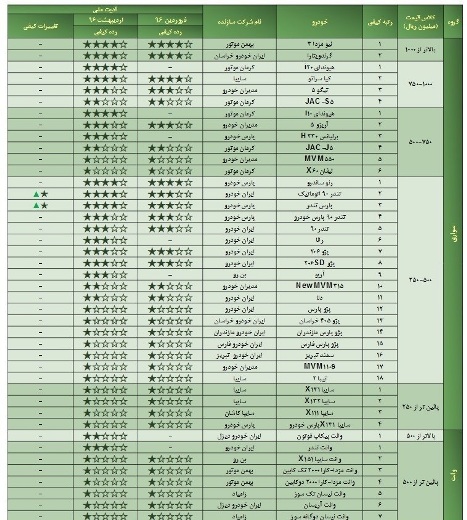 گروه کلاس قیمت (میلیون ریال) رتبه کیفی خودرو نام شرکت سازنده کیفیت ملی تغییرات کیفی
فروردین ۹۶ اردیبهشت ۹۶
رده کیفی رده کیفی
سواری
بالاتر از ۱۰۰۰
۱ نیو مزدا ۳ بهمن موتور ★★★★☆ ★★★★☆ -
۲ گراندویتارا ایران خودرو خراسان ★★★★☆ ★★★★☆ -
۷۵۰-۱۰۰۰
۱ هیوندای i۲۰ کرمان موتور - ★★★★☆ -
۲ کیا سراتو سایپا ★★★★☆ ★★★★☆ -
۳ تیگو ۵ مدیران خودرو ★★★☆☆ ★★★☆☆ -
۴ JAC -S۵ کرمان موتور ★★☆☆☆ ★★☆☆☆ -
۵۰۰-۷۵۰
۱ هیوندای i۱۰ کرمان موتور - ★★★★☆ -
۲ آریزو ۵ مدیران خودرو ★★★☆☆ ★★★☆☆ -
۳ برلیانس H ۳۳۰ پارس خودرو - ★★★☆☆ -
۴ JAC -J۵ کرمان موتور ★★☆☆☆ ★★☆☆☆ -
۵ MVM ۵۵۰ مدیران خودرو ★☆☆☆☆ ★☆☆☆☆ -
۶ لیفان X۶۰ کرمان موتور ★☆☆☆☆ ★☆☆☆☆ -
۲۵۰-۵۰۰
۱ رنو ساندرو پارس خودرو ★★★★☆ ★★★★☆ -
۲ تندر ۹۰ اتوماتیک ایران خودرو ★★★☆☆ ★★★★☆ ★▲
۳ پارس تندر پارس خودرو ★★★☆☆ ★★★★☆ ★▲
۴ تندر ۹۰ پارس خودرو پارس خودرو ★★★☆☆ ★★★☆☆ -
۵ تندر ۹۰ ایران خودرو ★★★☆☆ ★★★☆☆ -
۶ رانا ایران خودرو - ★★★☆☆ -
۷ پژو ۲۰۶ ایران خودرو ★★★☆☆ ★★★☆☆ -
۸ پژو ۲۰۶SD ایران خودرو ★★★☆☆ ★★★☆☆ -
۹ آریو بن رو - ★★★☆☆ -
۱۰ NewMVM۳۱۵ مدیران خودرو ★★☆☆☆ ★★☆☆☆ -
۱۱ دنا ایران خودرو ★☆☆☆☆ ★☆☆☆☆ -
۱۲ پژو پارس ایران خودرو ★☆☆☆☆ ★☆☆☆☆ -
۱۳ پژو ۴۰۵ خراسان ایران خودرو خراسان ★☆☆☆☆ ★☆☆☆☆ -
۱۴ پژو پارس مازندران ایران خودرو مازندران ★☆☆☆☆ ★☆☆☆☆ -
۱۵ پژو پارس فارس ایران خودرو فارس ★☆☆☆☆ ★☆☆☆☆ -
۱۶ سمند تبریز ایران خودرو تبریز ★☆☆☆☆ ★☆☆☆☆ -
۱۷ MVM۱۱۰S مدیران خودرو ★☆☆☆☆ ★☆☆☆☆ -
۱۸ تیبا ۲ سایپا ★☆☆☆☆ ★☆☆☆☆ -
پائین تر از ۲۵۰
۱ سایپا X۱۳۱ سایپا ★☆☆☆☆ ★☆☆☆☆ -
۲ سایپا X۱۳۲ سایپا ★☆☆☆☆ ★☆☆☆☆ -
۳ سایپا X۱۱۱ سایپا کاشان ★☆☆☆☆ ★☆☆☆☆ -
۴ سایپا X۱۳۱ پارس خودرو پارس خودرو ★☆☆☆☆ ★☆☆☆☆ -
وانت
بالاتر از ۵۰۰
۱ وانت پیکاپ فوتون ایران خودرو دیزل - ★★☆☆☆ -
پائین تر از ۵۰۰
۱ وانت تندر ایران خودرو - ★★★☆☆ -
۲ وانت سایپا X۱۵۱ بن رو ★☆☆☆☆ ★☆☆☆☆ -
۳ وانت مزدا-کارا ۲۰۰۰ تک کابین بهمن موتور ★☆☆☆☆ ★☆☆☆☆ -
۴ وانت مزدا-کارا ۲۰۰۰ دوکابین بهمن موتور ★☆☆☆☆ ★☆☆☆☆ -
۵ وانت نیسان تک سوز زامیاد ★☆☆☆☆ ★☆☆☆☆ -
۶ وانت آریسان ایران خودرو دیزل ★☆☆☆☆ ★☆☆☆☆ -
۷ وانت نیسان دوگانه سوز زامیاد ★☆☆☆☆ ★☆☆☆☆ -